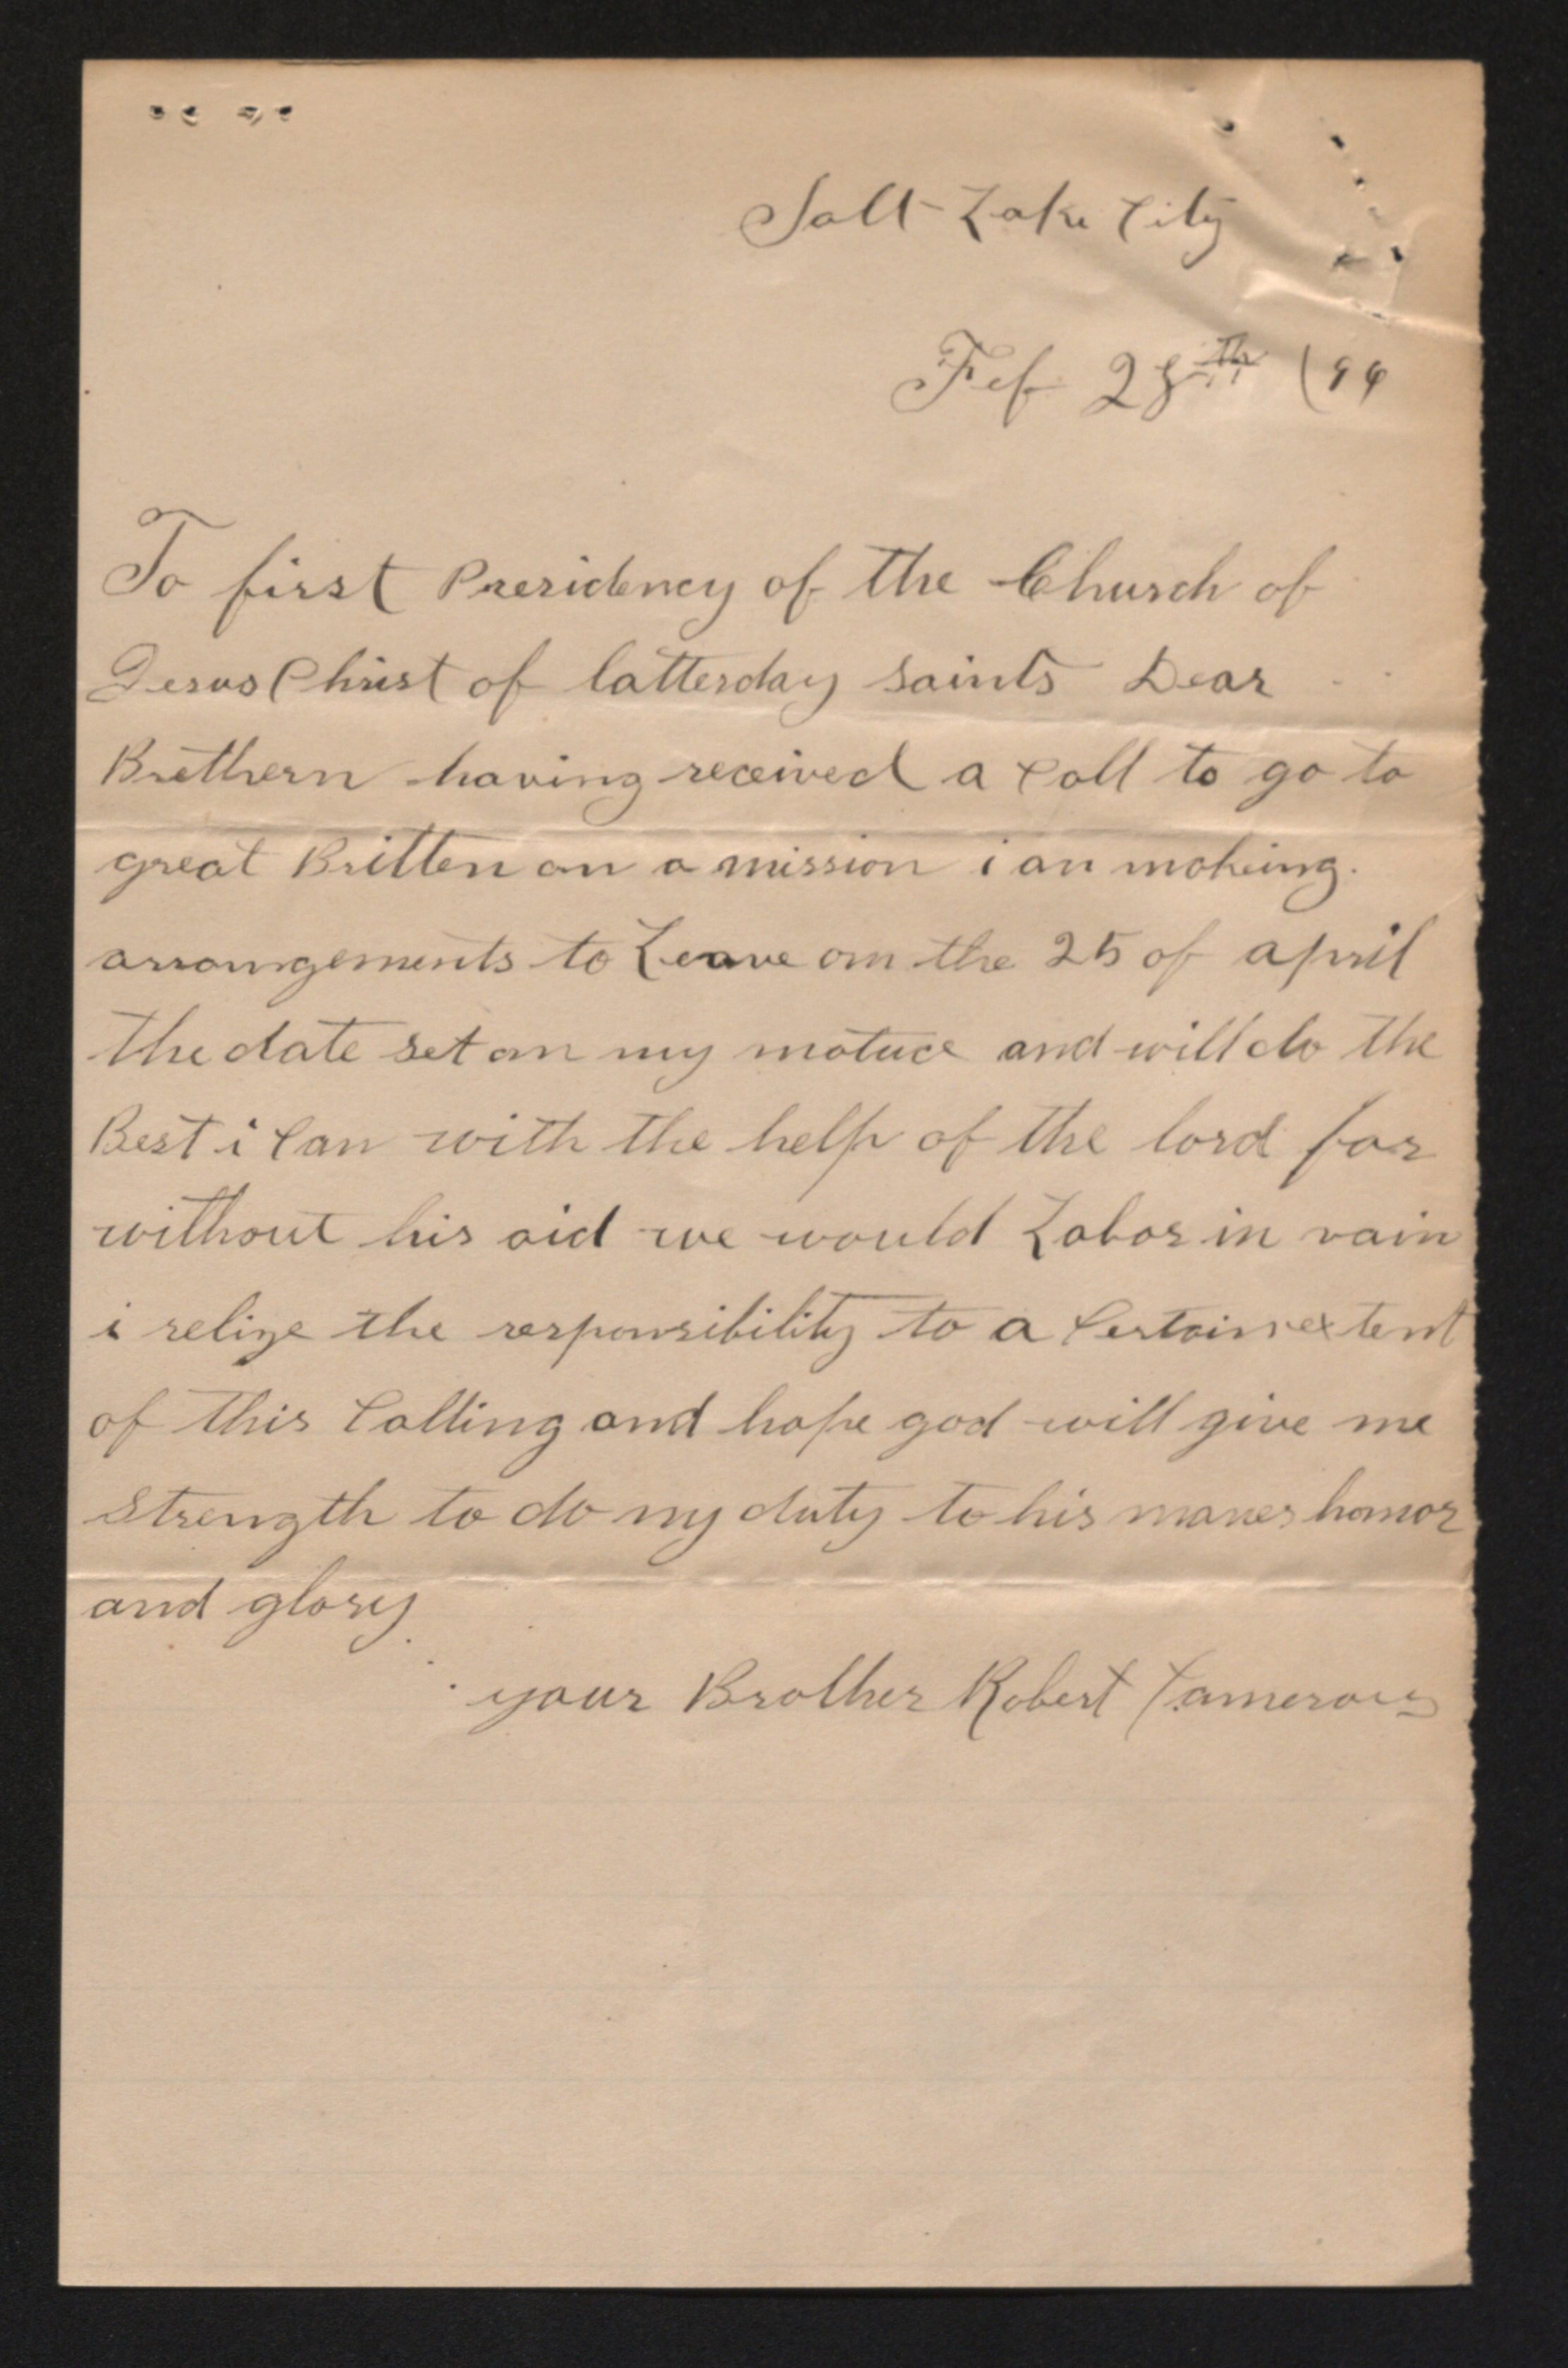 Salt Lake City
Feb 28th /99
To first Presidency of the Church of
Jesus Christ of latterday saints Dear
Brethern having received a call to go to
great Britten on a mission i am makeing
arrangements to Leave on the 25 of april
the date set on my and will do the
Best i Can with the help of the lord for
without his aid we would Labor in vain
i relize the responsibility to a Certain extent
of this Calling and hope god will give me
Strength to do my duty to his honor
and glory
your Brother Robert Cameron